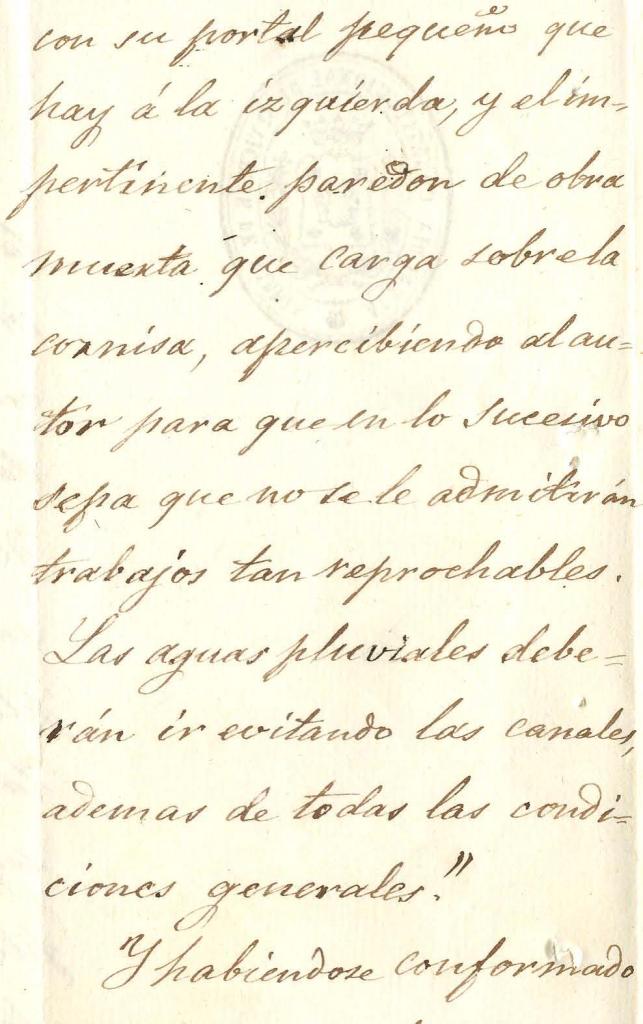 con su portal pequeño que
hay á la izquierda, y el im-
pertinente paredon de obra
muerta que carga sobre la
cornisa, apercibiendo al au=
tor para que en lo sucesivo
sepa que no se le admitirán
trabajos tan reprochables.
Las aguas pluviales debe=
rán ir evitando las canales,
ademas de todas las condi=
ciones generales."
Y habiendose conformado